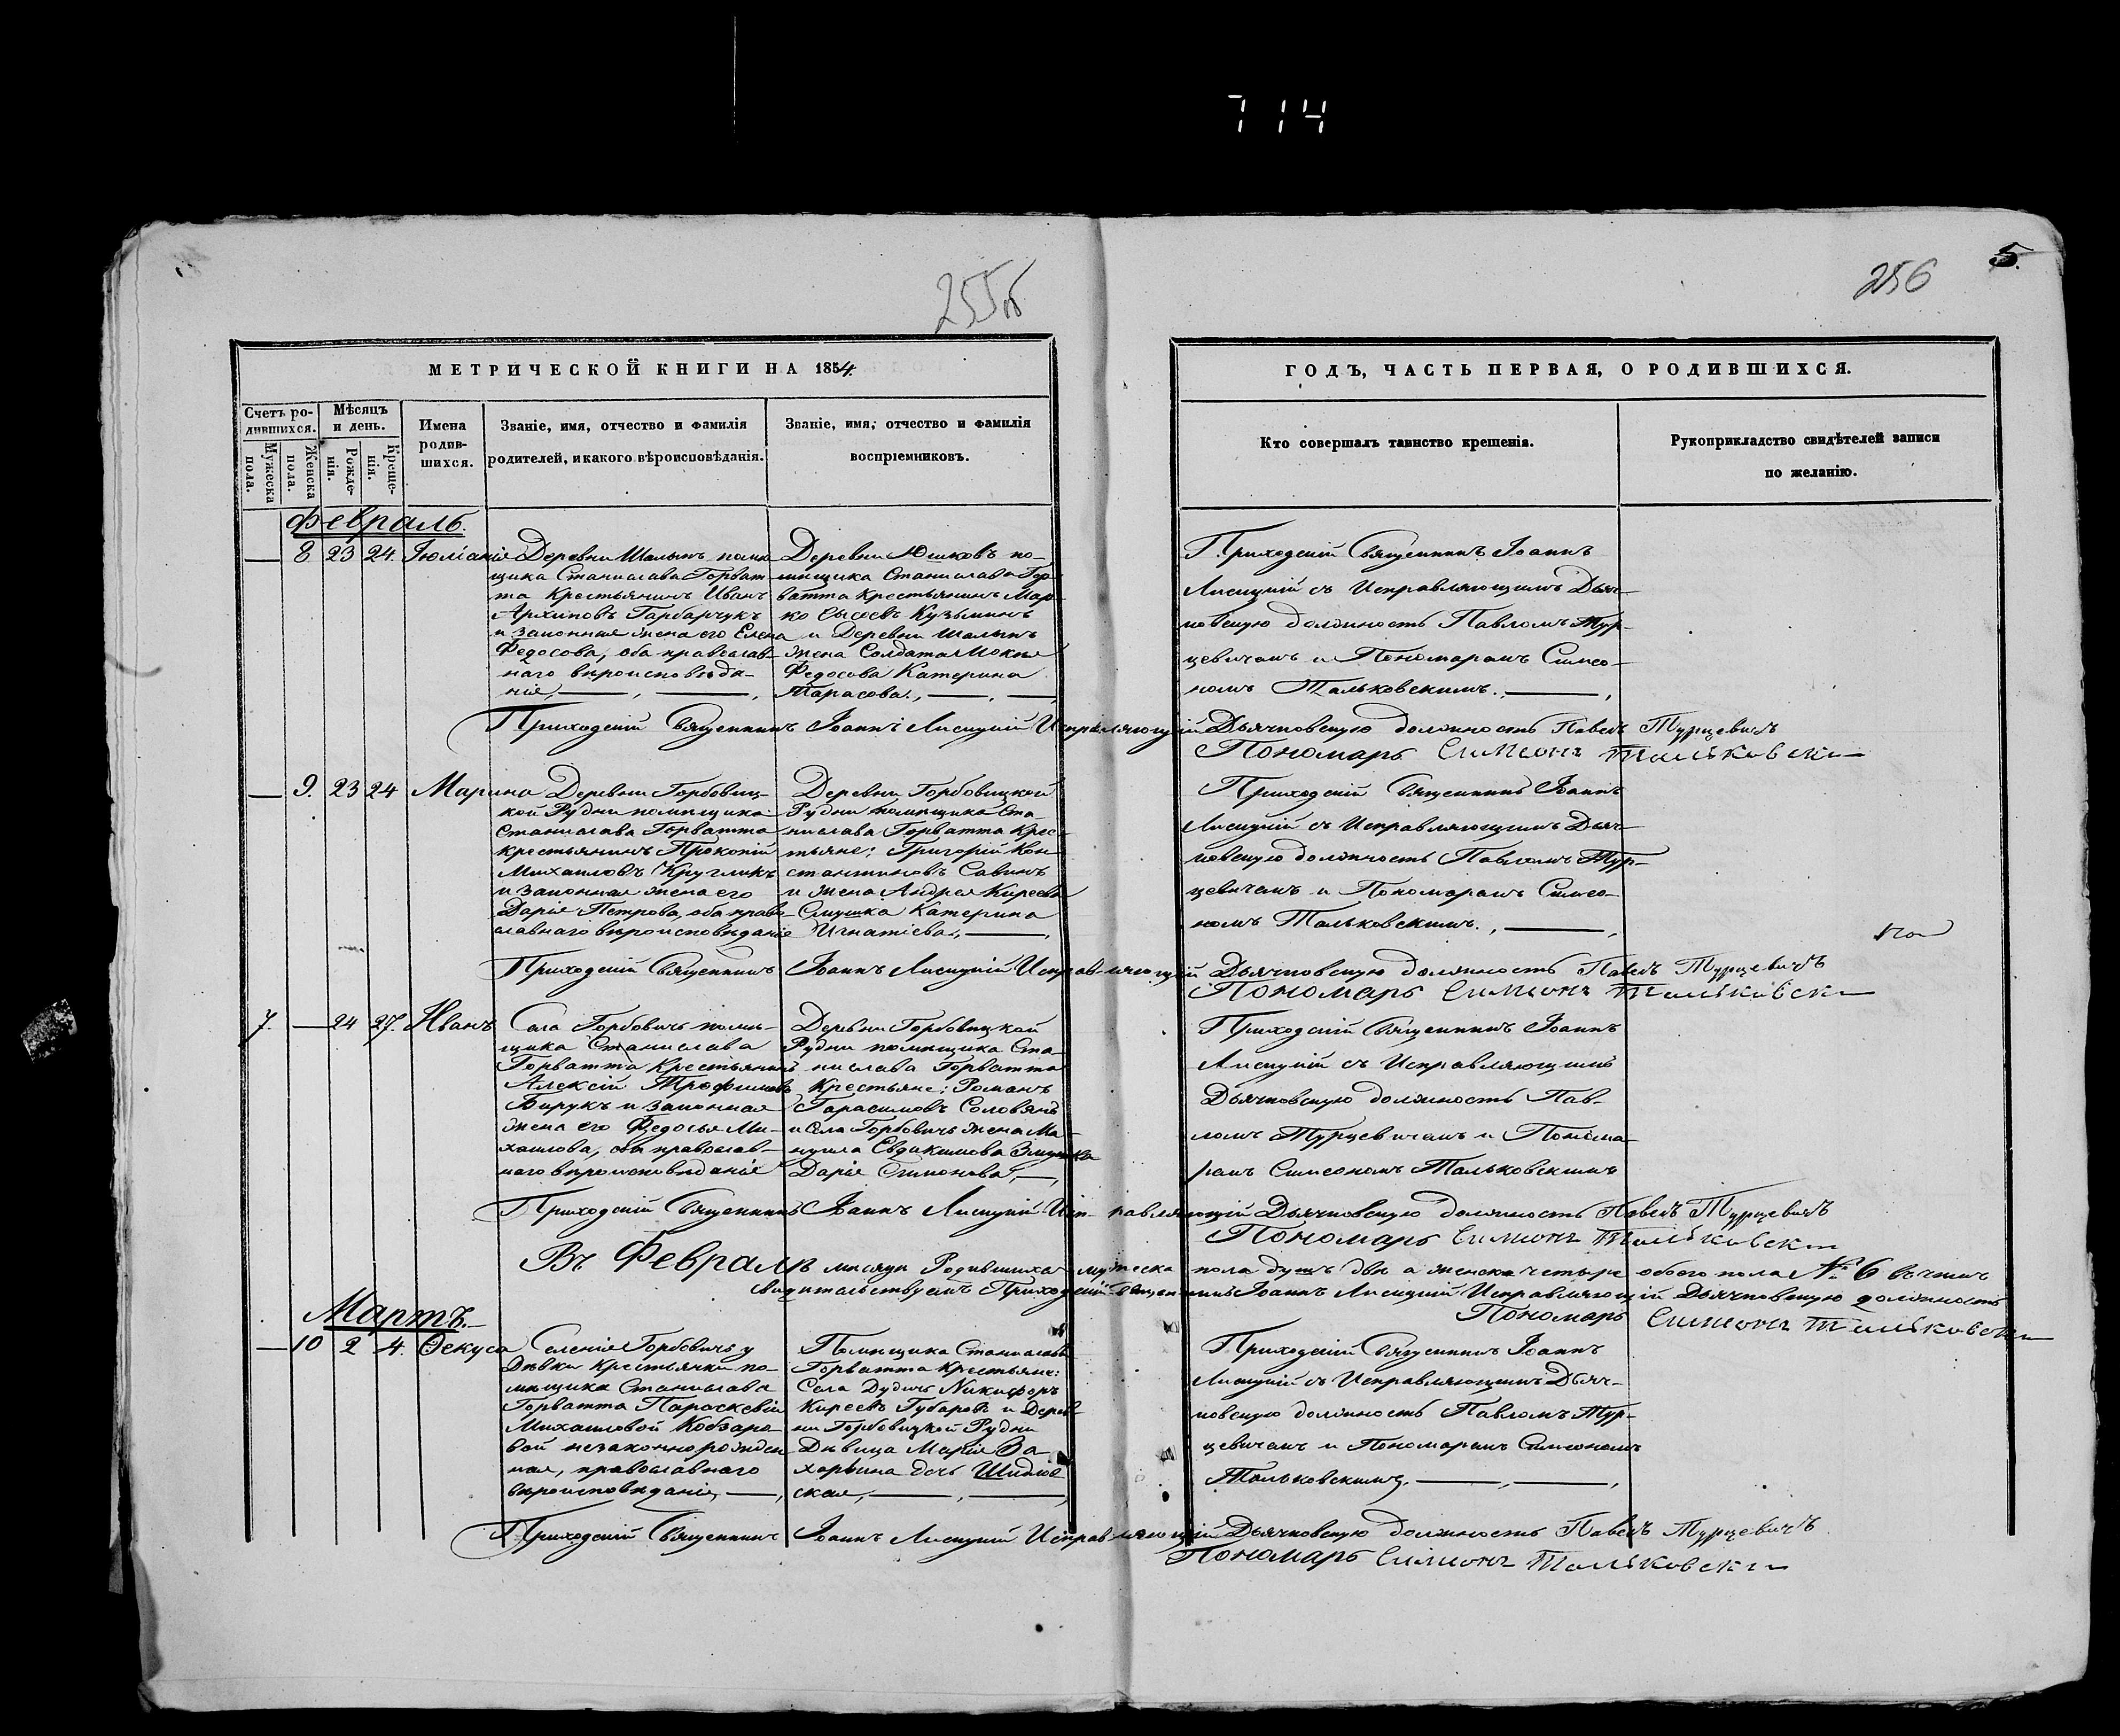 714
255об
256
5.
МЕТРИЧЕСКОЙ КНИГИ НА 1854.
Счетъ ро-
дившихся.
Мужеска
пола.
Женска
пола.
Мѣсяцъ
и день.
Рожде-
нія.
Креще-
нія.
Имена
родив-
шихся.
Званіе, имя, отчество и фамилія
родителей, и какого вѣроисповѣданія.
Званіе, имя, отчество и фамилія
воспріемниковъ.
ГОДЪ, ЧАСТЬ ПЕРВАЯ, О РОДИВШИХСЯ.
Кто совершалъ таинство крещенія.
Рукоприкладство свидѣтелей записи
по желанію.
Февраль.
— 8. 23 24. Іюліанія
Деревни Шалыпъ помѣ-
щика Станислава Горват-
та крестьянинъ Иванъ
Архиповъ Гарбарчукъ
и законная жена его Елена
Федосова, оба православ-
наго вѣроисповѣда-
нія
Деревни Юшковъ по-
мѣщика Станислава Гор-
ватта крестьянинъ Мар-
ко Сысоевъ Кузьминъ
и Деревни Шалыпъ
жена Солдата
Федосова Катерина
Тарасова.
Приходскій Священникъ Іоаннъ
Лисицкій съ Исправляющимъ Дьяч-
ковскую должность Павломъ Тур-
цевичемъ и Пономаремъ Симео-
номъ Тальковскимъ.
Приходскій Священникъ Іоаннъ Лисицкій Исправляющій Дьячковскую должность Павелъ Турцевичъ
Пономарь Симеонъ Тальковскій
— 9. 23 24 Марина
Деревни Горбовиц-
кой Рудни помѣщика
Станислава Горватта
крестьянинъ Прокопій
Михаиловъ Кругликъ
и законная жена его
Дарія Петрова, оба право-
славнаго вѣроисповѣданія
Деревни Горбовицкой
Рудни помѣщика Ста-
нислава Горватта крес-
тьяне: Григорій Кон-
стантиновъ Савинъ
и жена Андрея Киреева
Катерина
Игнатіева.
Приходскій Священникъ Іоаннъ
Лисицкій съ Исправляющимъ Дьяч-
ковскую должность Павломъ Тур-
цевичемъ и Пономаремъ Симео-
номъ Тальковскимъ.
Приходскій Священникъ Іоаннъ Лисицкій Исправляющій Дьячковскую должность Павелъ Турцевичъ
Пономарь Симеонъ Тальковскій
7. — 24 27. Иванъ
Села Горбовичъ помѣ-
щика Станислава
Горватта Крестьянинъ
Алексій Трофимовъ
Бирукъ и законная
жена его Федосья Ми-
хаилова, оба православ-
наго вѣроисповѣданія
Деревни Горбовицкой
Рудни помѣщика Ста-
нислава Горватта
Крестьяне: Романъ
Гарасимовъ Соловянъ
и Села Горбовичъ жена Ма-
нуила Евдакимова
Дарія Симонова.
Приходскій Священникъ Іоаннъ
Лисицкій съ Исправляющимъ
Дьячковскую должность Пав-
ломъ Турцевичемъ и Понома-
ремъ Симеономъ Тальковскимъ
Приходскій Священникъ Іоаннъ Лисицкій Исправляющій Дьячковскую должность Павелъ Турцевичъ
Пономарь Симеонъ Тальковскій
Въ Февралѣ мѣсяцѣ Родившихся мужеска пола душъ двѣ а женска четыре обоего пола № 6 въ чемъ
свидѣтельствуемъ Приходскій Священникъ Іоаннъ Лисицкій Исправляющій Дьячковскую должность
Пономарь Симеонъ Тальковскій
Мартъ.
— 10 2 4. Фекуса
Селенія Горбовичъ у
Дѣвки крестьянки по-
мѣщика Станислава
Горватта Параскевіи
Михаиловой Кобзаро-
вой незаконнорожден-
ная, православнаго
вѣроисповѣданія
Помѣщика Станислава
Горватта крестьяне:
Села Дудичъ Никифоръ
Киреевъ Губаровъ и Дерев-
ни Горбовицкой Рудни
Дѣвица Марія За-
харьина дочь Шидлов-
ская
Приходскій Священникъ Іоаннъ
Лисицкій съ Исправляющимъ Дьяч-
ковскую должность Павломъ Тур-
цевичемъ и Пономаремъ Симеономъ
Тальковскимъ.
Приходскій Священникъ Іоаннъ Лисицкій Исправляющій Дьячковскую должность Павелъ Турцевичъ
Пономарь Симеонъ Тальковскій